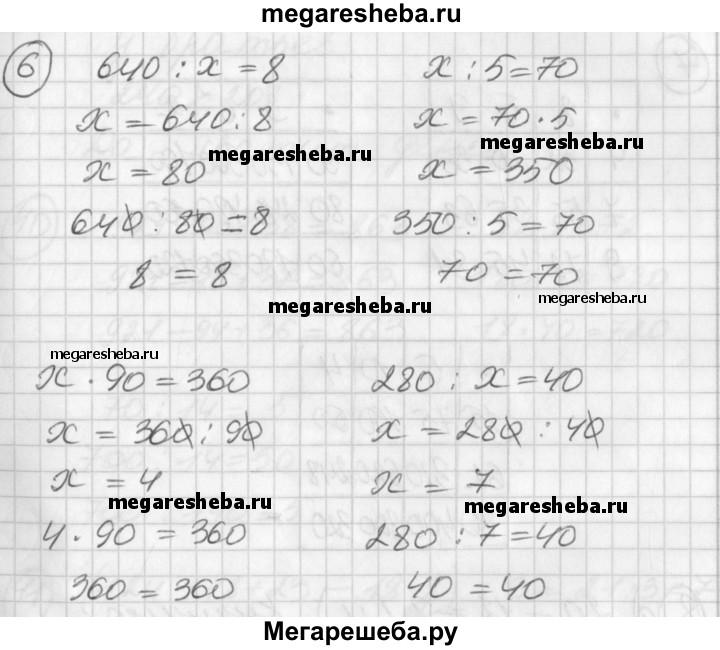 megaresheba.ru
6
640 : x = 8
x = 640 : 8
x = 80
640 : 80 = 8
8 = 8
x : 5 = 70
x = 70 · 5
x = 350
350 : 5 = 70
70 = 70
megaresheba.ru
megaresheba.ru
megaresheba.ru
megaresheba.ru
megaresheba.ru
x · 90 = 360
x = 360 : 90
x = 4
4 · 90 = 360
360 = 360
280 : x = 40
x = 280 : 40
x = 7
280 : 7 = 40
40 = 40
megaresheba.ru
megaresheba.ru
Мегарешеба.ру